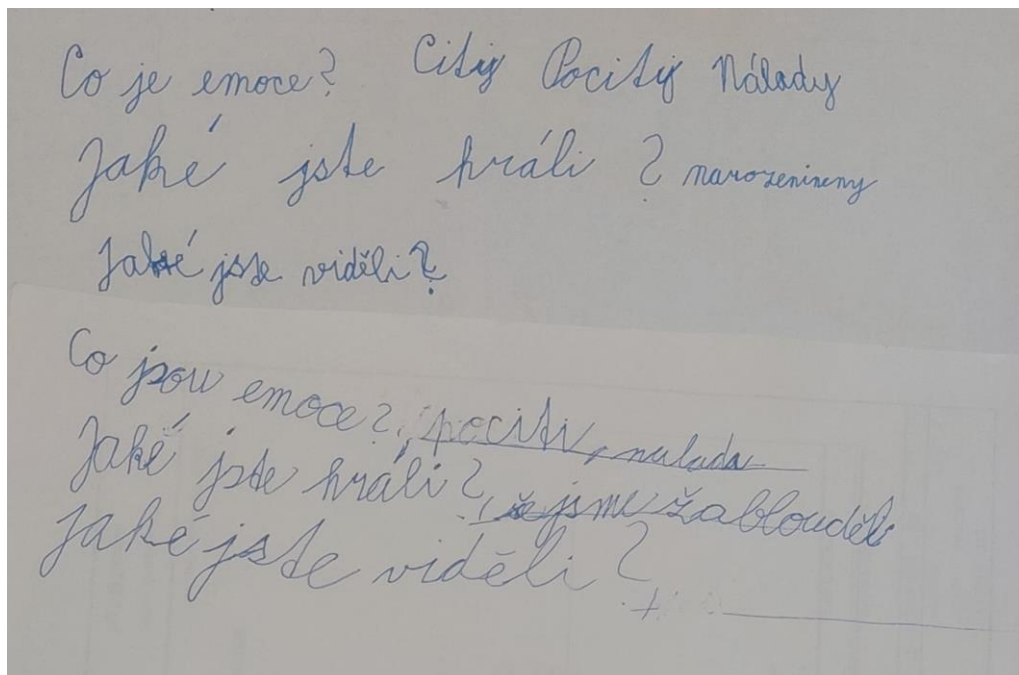 Co je emoce? City Pocity Nálady
Jaké jste hráli ? narozenineny
Jaké jste viděli?
Co jsou emoce?, pociti, nalada
Jaké jste hráli?, že jsme žablouděli
Jaké jste viděli ?